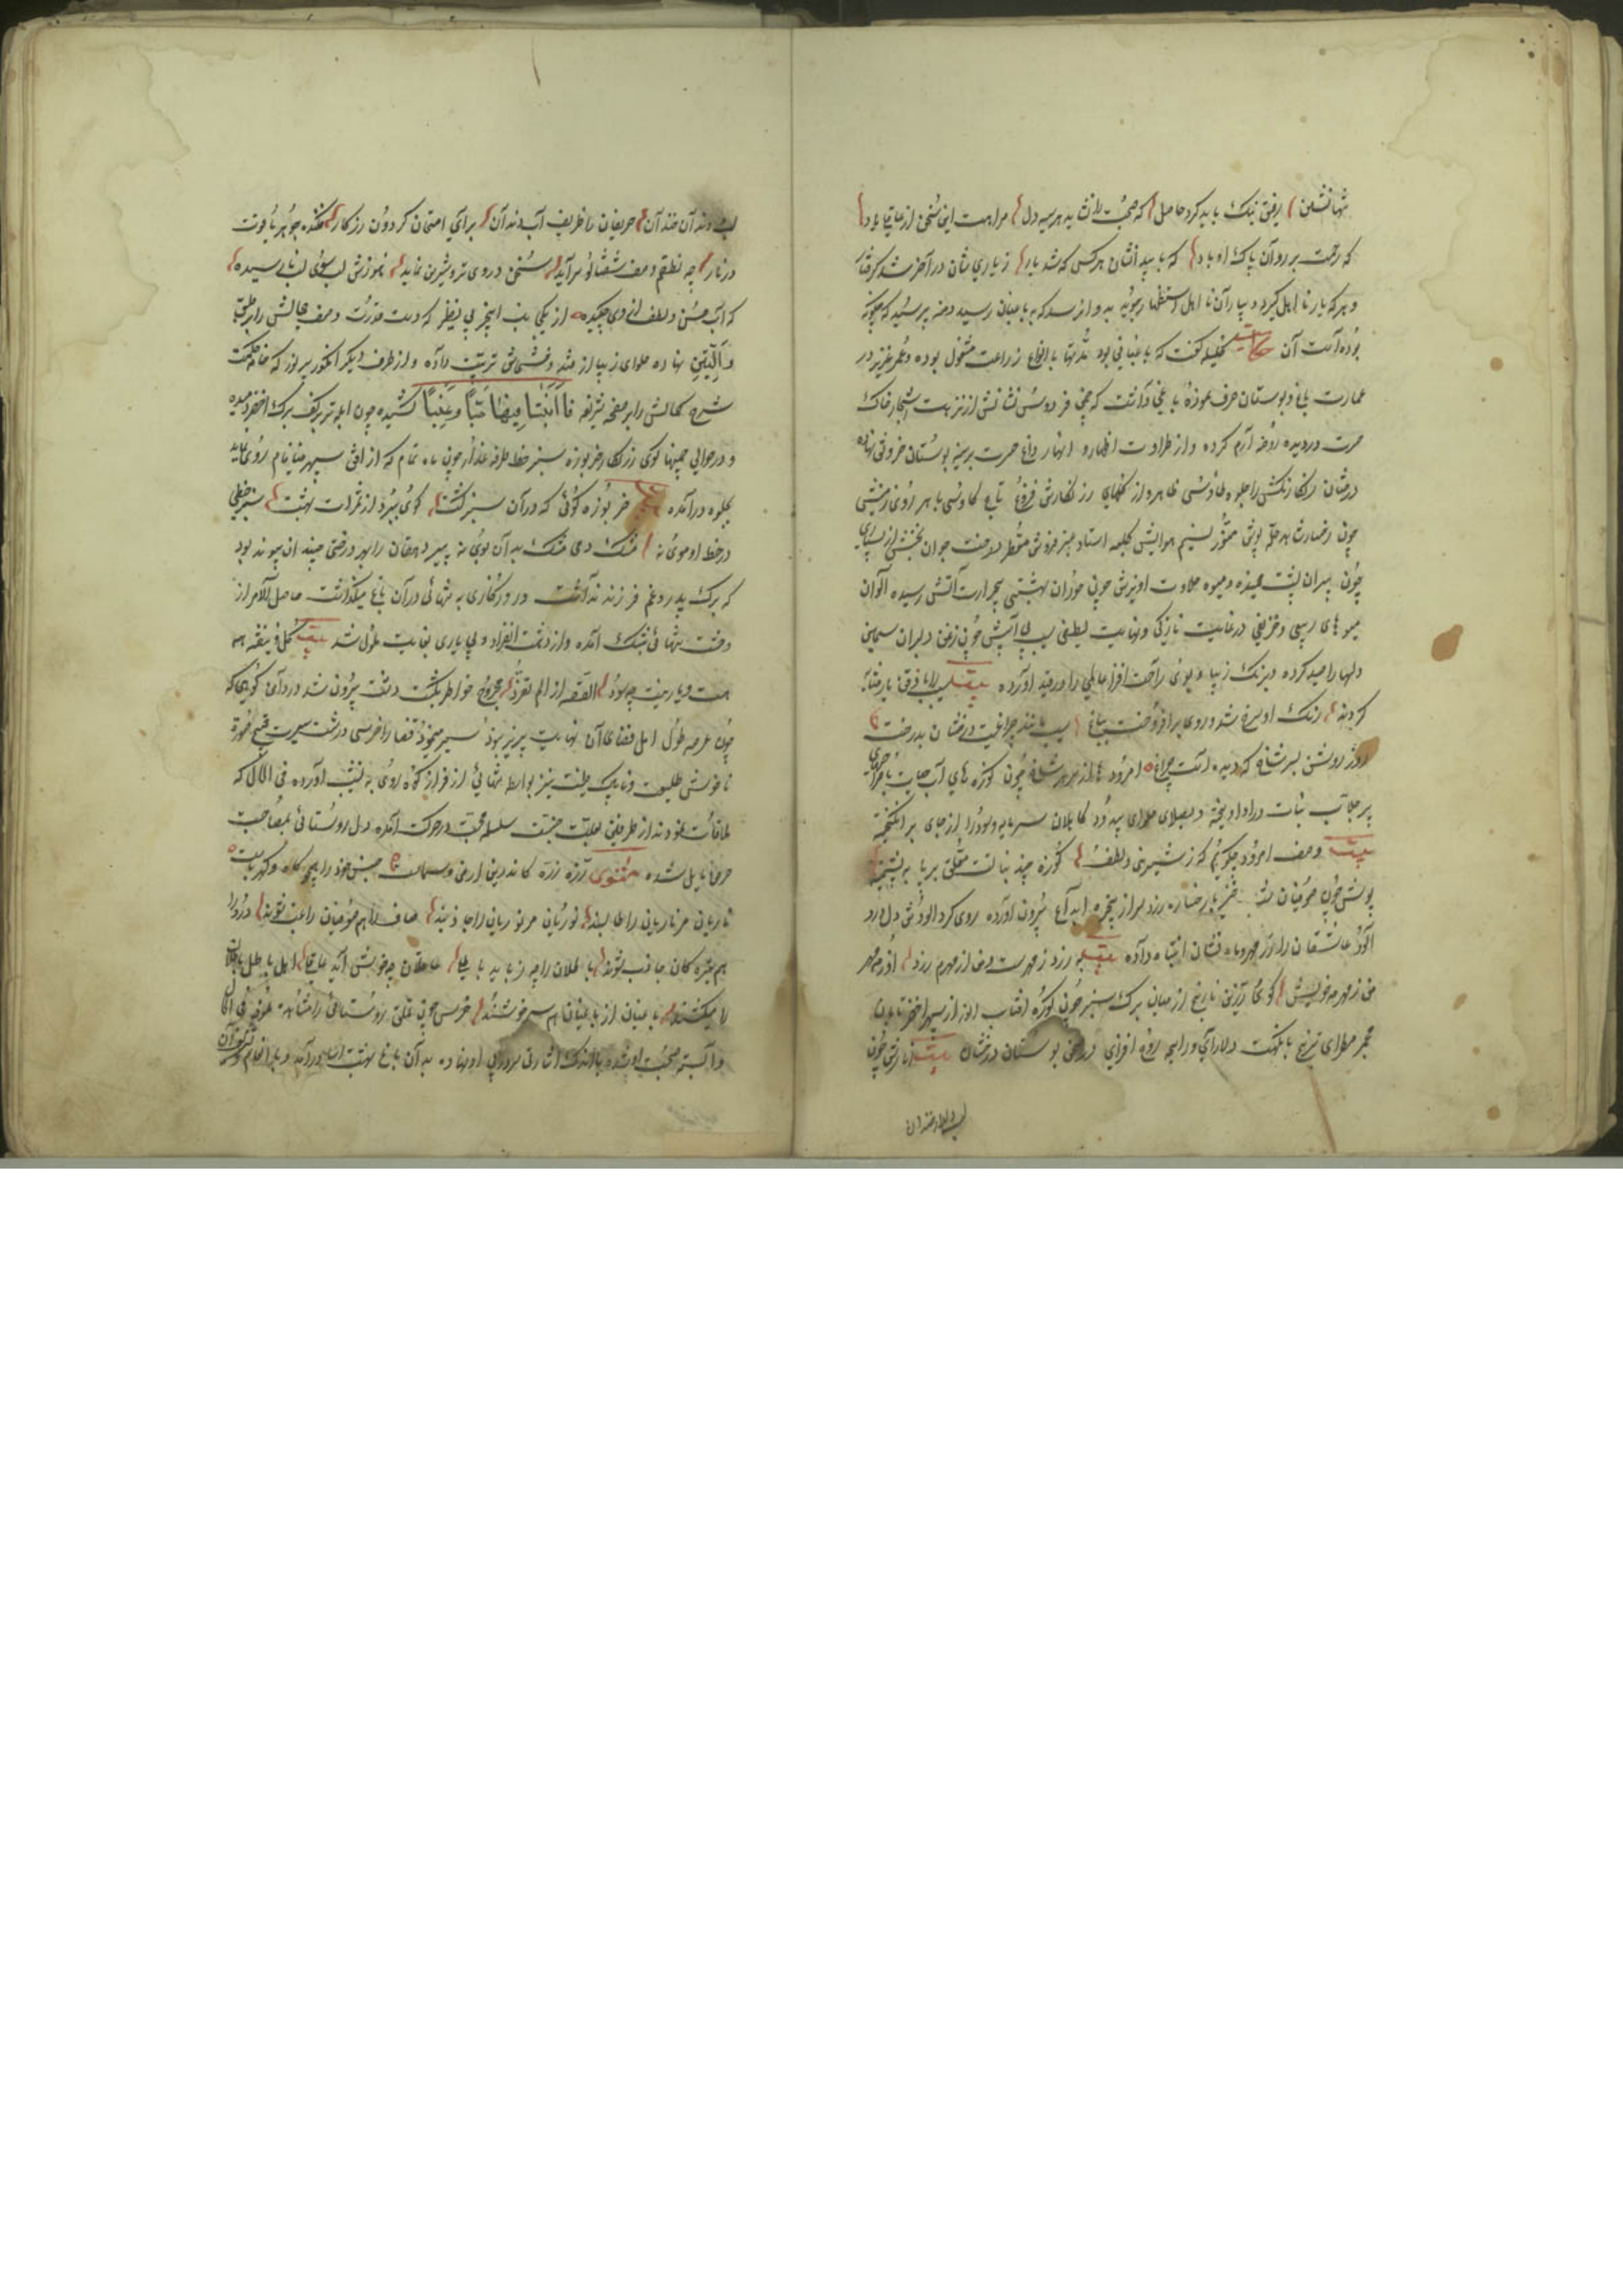 تنها نشین رفیق نیک باید کرد حاصل که صحبت را نشاید هر سیه دل مرا هست این سخن از عاقلی یاد
که رحمت بر روان پاک او باد که با بیدانشان هر کس که شد یار ز یاری شان در آخر شد گرفتار
و هر که یار نا اهل گیرد و بیاران نا اهل استظهار جوید بدو آن رسد که به باغبان رسید دمنه پرسید که چگونه
بوده است آن حکایت کلیله گفت که باغبانی بود مدتها با انواع زراعت مشغول بوده و عمر عزیز در
عمارت باغ و بوستان صرف نموده باغی داشت که چمن فردوس نشانش از نزهت اشجار خاک
حسرت در دیده روضه ارم کرده و از طراوت ازهار و انهار داغ حسرت بر سینه بوستان خورنق نهاده
درختان رنگارنگش را جلوه طاوسی ظاهر و از گلهای زرنگارش فروغ تاج کاوسی باهر روی زمینش
چون رخسار شاهد حله پوش منور نسیم هوایش کلبه استاد عنبر فروش معطر درخت جوان بختش از بسیاری
چون پیران پشت خمیده و میوه حلاوت آمیزش چون حوران بهشتی بی حرارت آتش رسیده الوان
میوه های ربیعی و خریفی در غایت تازگی و نهایت لطیفی سیب بی آسیبش چون زنخ دلبران سیمین
دلها را صید کرده و برنگ زیبا و بوی راحت افزا عالمی را در قید آورده بیت سیب را با ذقن یار مشابه
کردند رنگ او سرخ شد و روی برافروخت بباغ سیب مانند چراغیست درخشان بدرخت
روز روشن بسر شاخ که دیده است چراغ امرودها از سر هر شاخ چون کوزه های آب حیات
پر جلاب نبات در او آویخته و بصلای حلوای بیدود کاهلان سرمایه و سود را از جای برانگیخته
بیت وصف امرود چگویم که ز شیرینی و لطف کوزه چند نباتست معلق بر بار به پشمینه
پوشی چون صوفیان با رخساره زرد سر از پنجره ابداع بیرون آورده روی گرد آلودش دل درد
آلود عاشقان را از مهر و ماه نشان اشتباه داده بیت به زرد ز مهرست و من از مهرم زرد او ز مهر
من ز مهر مه خویش گوی زرین نارنج از میان برگ سبز چون کره آفتاب از سپهر اخضر تابان
مجمر مطرای ترنج با نکهت دلارای و رایحه روح افزای در صحن بوستان درخشان بیت انارش چون
لب دلدار خندان
لب دلدار خندان حریفان را ظریف آب دندان برای امتحان گردون زرکار فکنده جوهر یاقوت
در نار چه نطقم وصف شفتالو سرآید سخن در وی تر و شیرین نماید نموذش لب بسوی لب نارسیده
که آب حسن و لطف از وی چکیده از یک جانب انجیر بی نظیر که دست قدرت وصف جمالش را بر طبق
و التین نهاده حلوای زیبا از قند و خشخاش ترتیب داده و از طرف دیگر انگور پر نور که خامه حکمت
شرح کمالش را بر صفحه شریفه فانبتنا فیها حبا و عنبا کشیده چون آبله تر بر کف برگ اخضر دمیده
و در حوالی چمنها گوی زرنگار خربوزه سبز خط طرفه عذار چون ماه تمام که از افق سپهر مینا فام روی نماید
بجلوه درآمده خربوزه گوئی که در آن سبز گشت گوی ببرد از ثمرات بهشت سبز خطی
در خط او موی نه مشک دمی مشک بدان بوی نه پیر دهقان را بهر درختی چند آن پیوند بود
که برگ پدر و غم فرزند نداشت و روزگاری به تنهائی در آن باغ میگذاشت حاصل الامر از
وحشت تنهائی بتنگ آمده و از دهشت انفراد و بی یاری بغایت ملول شد بیت گل و بنفشه همه
هست و یار نیست چه سود القصه از الم تفرد مجروح خاطر بگشت دشت بیرون شد و در دامن کوهی که
چون عرصه طول امل فضای آن نهایت پذیر نبود سیر می نمود قضا را خرسی درشت سیرت قبیح صورة
ناخوش طلعت و ناپاک طینت نیز بواسطه تنهائی از فراز کوه روی به نشیب آورده فی الحال که
ملاقات نمودند از طرفین بعلت جنسیت سلسله محبت در حرکت آمده دل روستائی بمصاحبت
خرس مایل شده مثنوی ذره ذره کاندرین ارض و سماست جنس خود را همچو کاه و کهرباست
ناریان مر ناریان را طالبند نوریان مر نوریان را جاذبند صاف را هم صوفیان راغب شوند درد را
هم تیره کان جاذب شوند باطلان را چه رباید باطلی عاقلان چه خوش آید عاقلی اهل باطل باطلان
را میکشند باغیان از باغیان هم سر خوشند خرس چون تملق روستائی را مشاهده نمود فی الحال
وابسته صحبت او شده باندک اشارتی سر در پی او نهاده به آن باغ بهشت آسا درآمد و به انعام